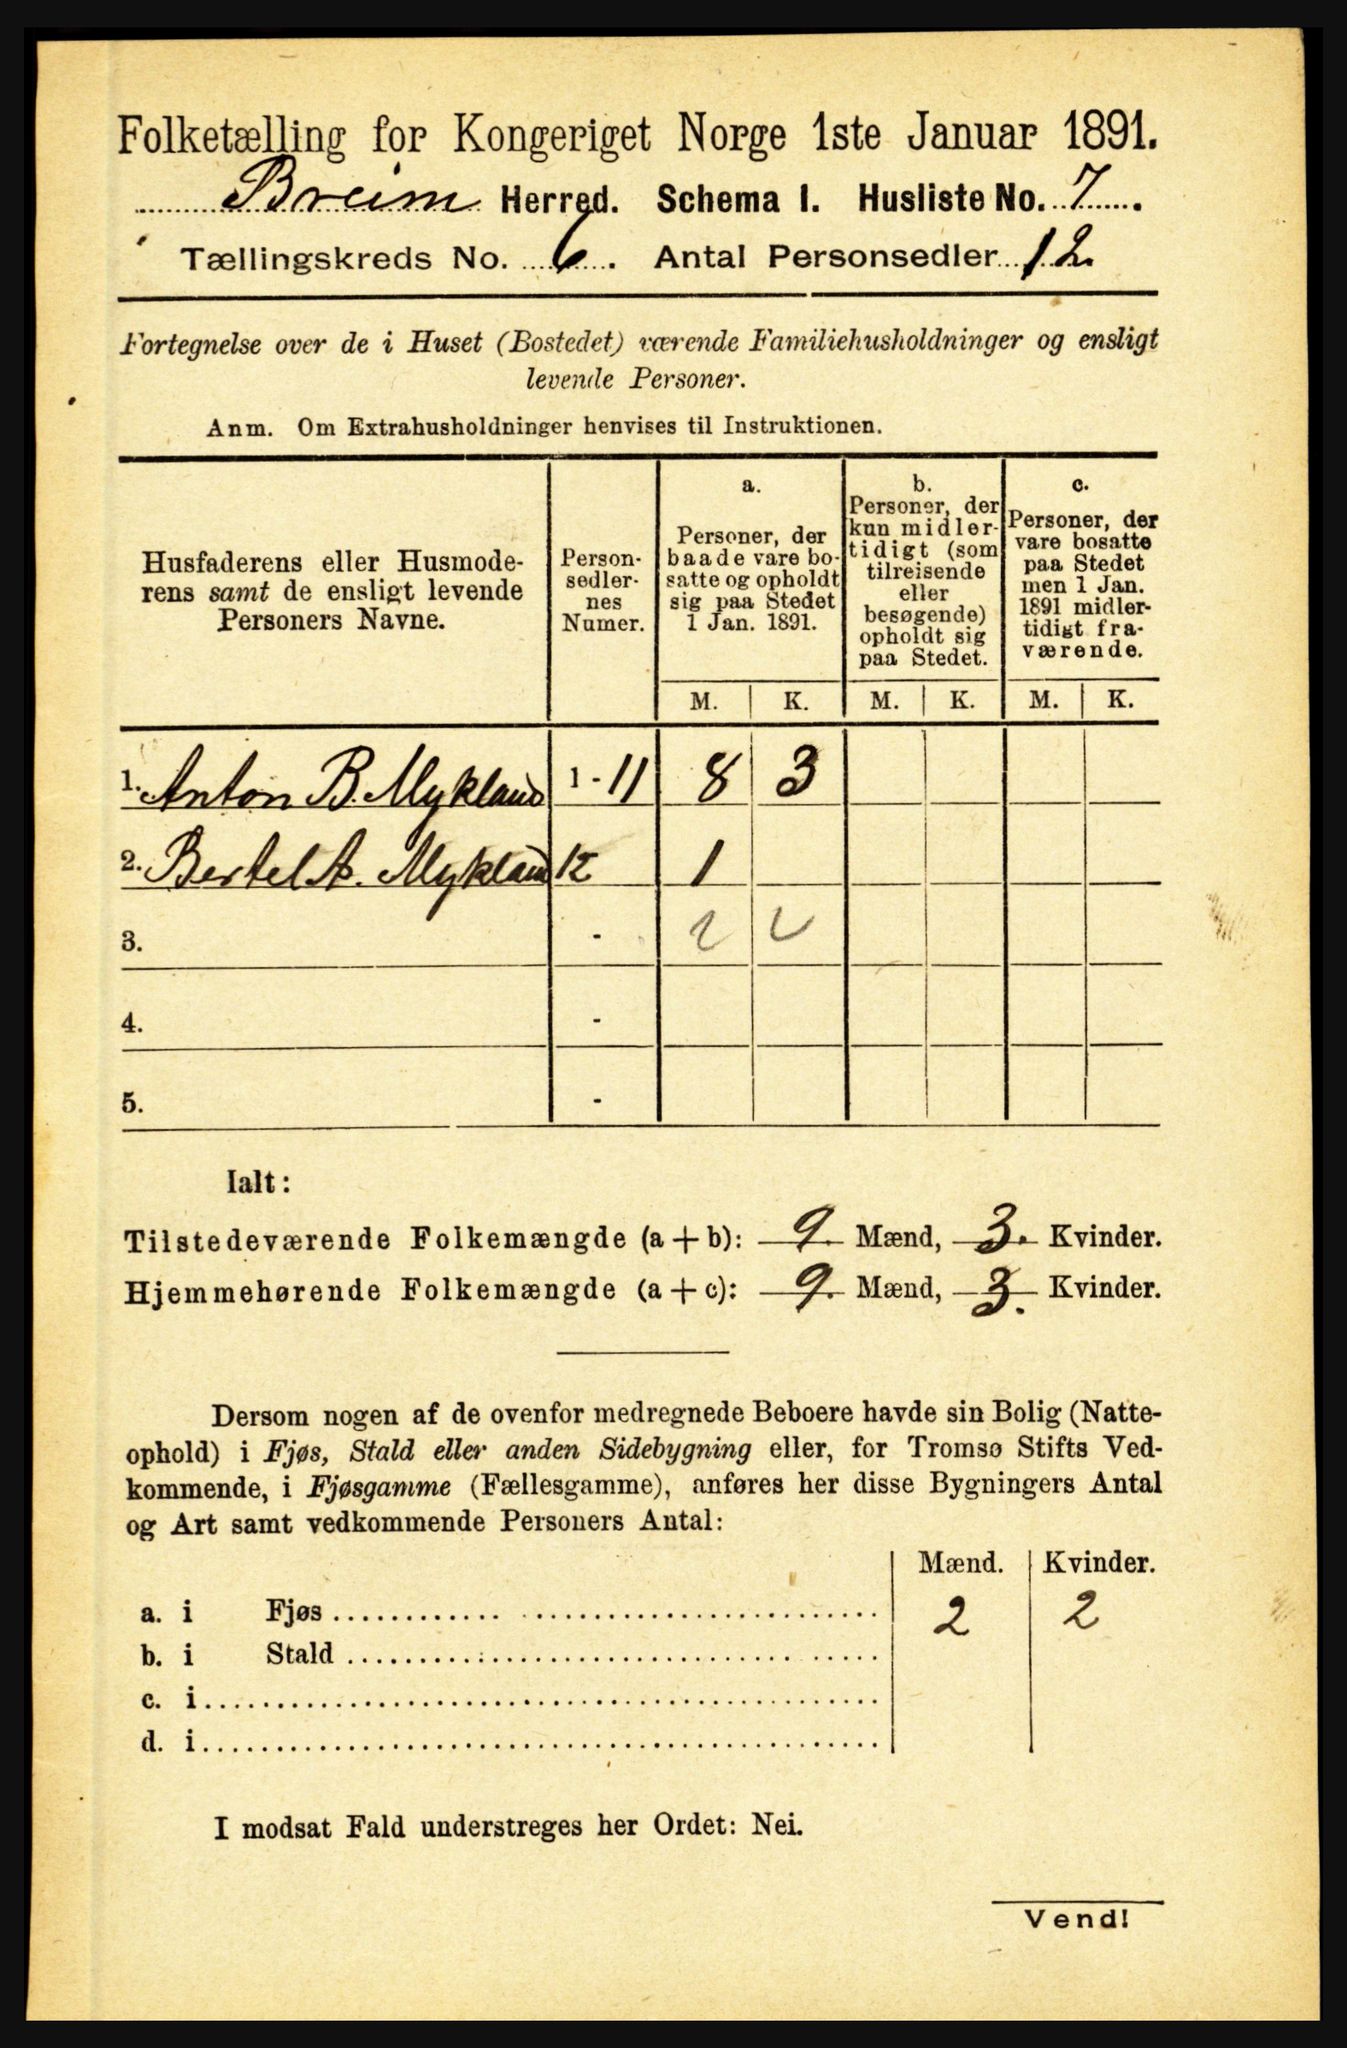 Folketælling for Kongeriget Norge 1ste Januar 1891.
Breim Herred. Schema I. Husliste No. 7.
Tællingskreds No. 6. Antal Personsedler 12.
Fortegnelse over de i Huset (Bostedet) værende Familiehusholdninger og ensligt
levende Personer.
Anm. Om Extrahusholdninger henvises til Instruktionen.
Husfaderens eller Husmode-
rens samt de ensligt levende
Personers Navne.
Person-
sedler-
nes
Numer.
a.
Personer, der
baade vare bo-
satte og opholdt
sig paa Stedet
1 Jan. 1891.
b.
Personer, der
kun midler-
tidigt (som
tilreisende
eller
besøgende)
opholdt sig
paa Stedet.
c.
Personer, der
vare bosatte
paa Stedet
men 1 Jan.
1891 midler-
tidigt fra-
værende.
M. K. M. K. M. K.
1. Anton B. Mykland 1 - 11 8 3
2. Bertel A. Mykland 12 1
3. - 2 2
4. -
5. -
Ialt:
Tilstedeværende Folkemængde (a + b): 9. Mænd, 3. Kvinder.
Hjemmehørende Folkemængde (a + c): 9. Mænd, 3. Kvinder.
Dersom nogen af de ovenfor medregnede Beboere havde sin Bolig (Natte-
ophold) i Fjøs, Stald eller anden Sidebygning eller, for Tromsø Stifts Ved-
kommende, i Fjøsgamme (Fællesgamme), anføres her disse Bygningers Antal
og Art samt vedkommende Personers Antal:
Mænd. Kvinder.
a. i Fjøs 2 2
b. i Stald
c. i
d. i
I modsat Fald understreges her Ordet: Nei.
Vend!